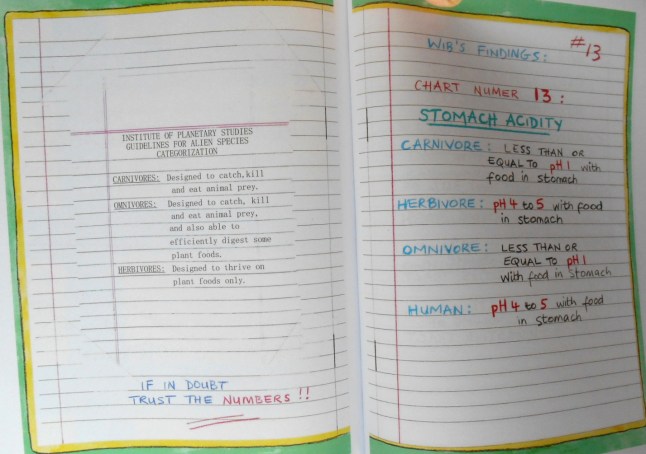 INSTITUTE OF PLANETARY STUDIES
GUIDELINES FOR ALIEN SPECIES
CATEGORIZATION
CARNIVORES: Designed to catch, kill
and eat animal prey.
OMNIVORES: Designed to catch, kill
and eat animal prey,
and also able to
efficiently digest some
plant foods.
HERBIVORES: Designed to thrive on
plant foods only.
IF IN DOUBT
TRUST THE NUMBERS !!
WIB'S FINDINGS: #13
CHART NUMER 13:
STOMACH ACIDITY
CARNIVORE: LESS THAN OR
EQUAL TO pH 1 with
food in stomach
HERBIVORE: pH 4 to 5 with food
in stomach
OMNIVORE: LESS THAN OR
EQUAL TO pH 1
with food in stomach
HUMAN: pH 4 to 5 with food
in stomach